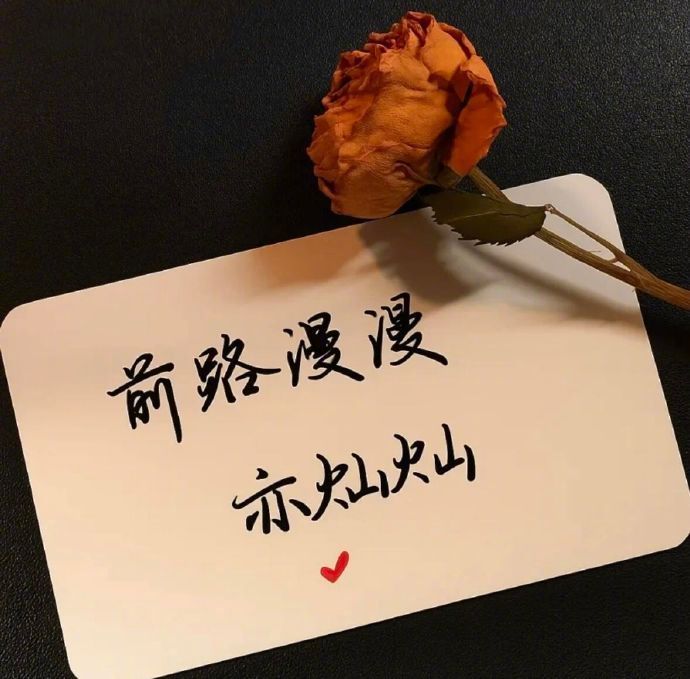 前路漫漫
亦灿灿